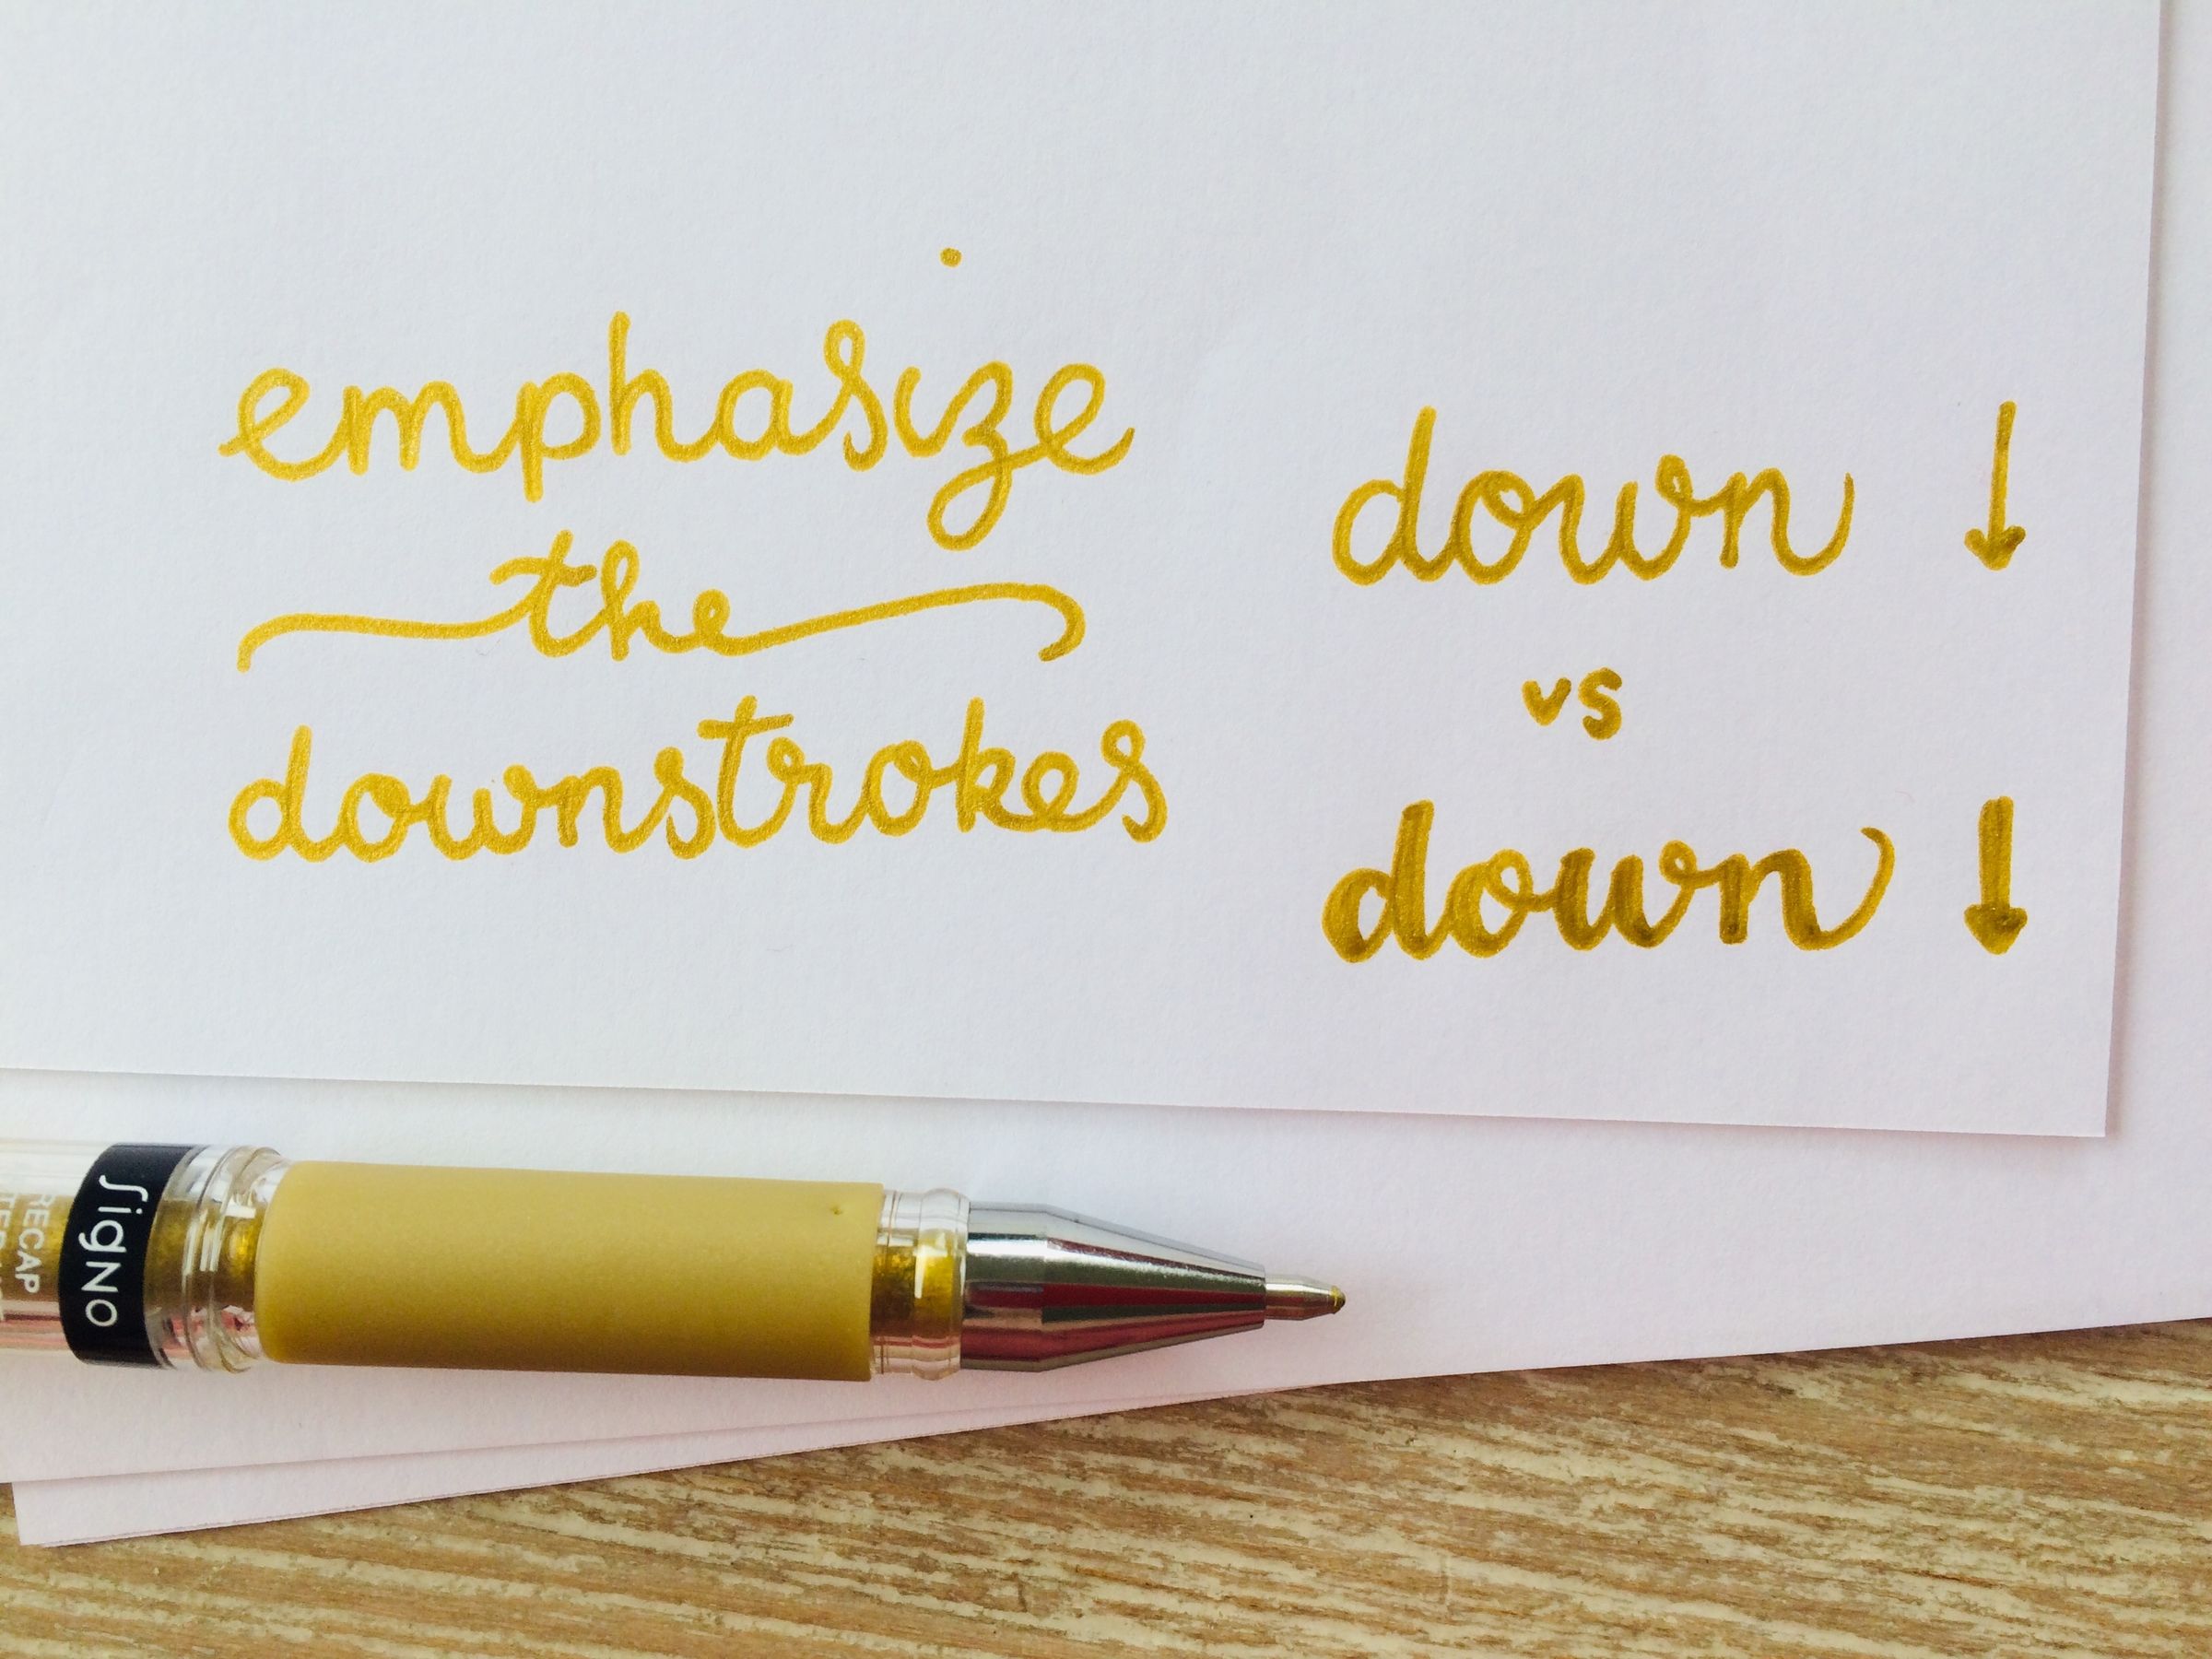 emphasize
the
downstrokes
down ↓
vs
down ↓
signo
RECAP